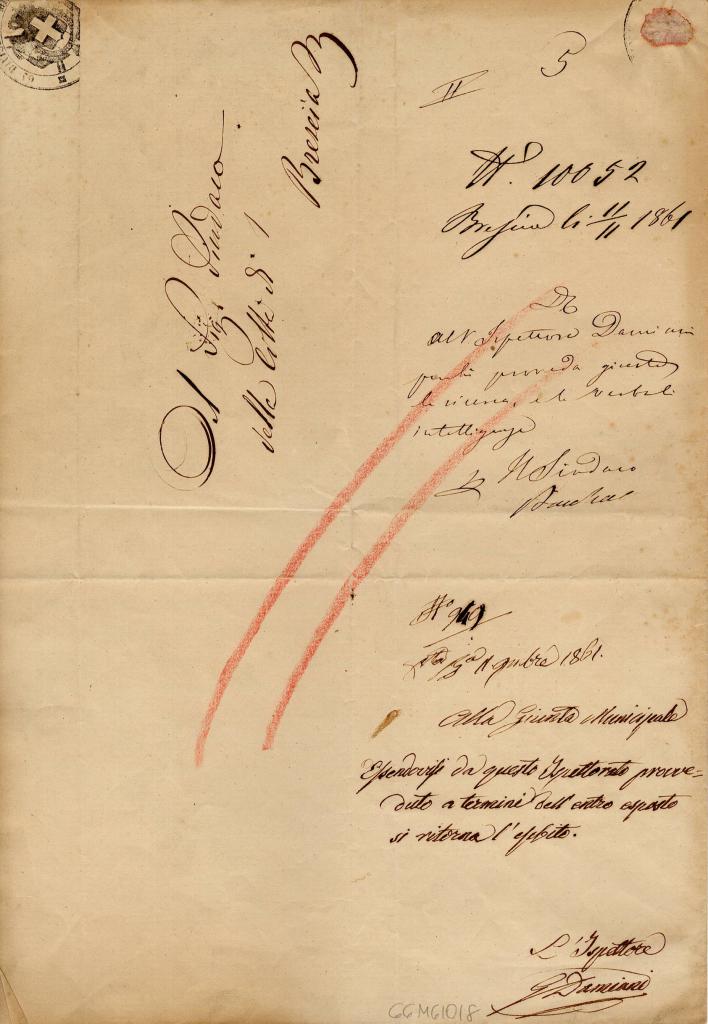 Al Sig.r Sindaco
della Città di
Brescia
II
5
N.° 10052
Brescia li 11/11 1861
All' Ispettore Damiani
perchè provveda giusta
la ricerca, e le verbali
intelligenze
Il Sindaco
N.° 949
11 9mbre 1861.
Alla Giunta Municipale
Essendovisi da questo Ispettorato provve-
duto a termini dell'entro esposto
si ritorna l'esibito.
L'Ispettore
G Damiani
GGMG1018